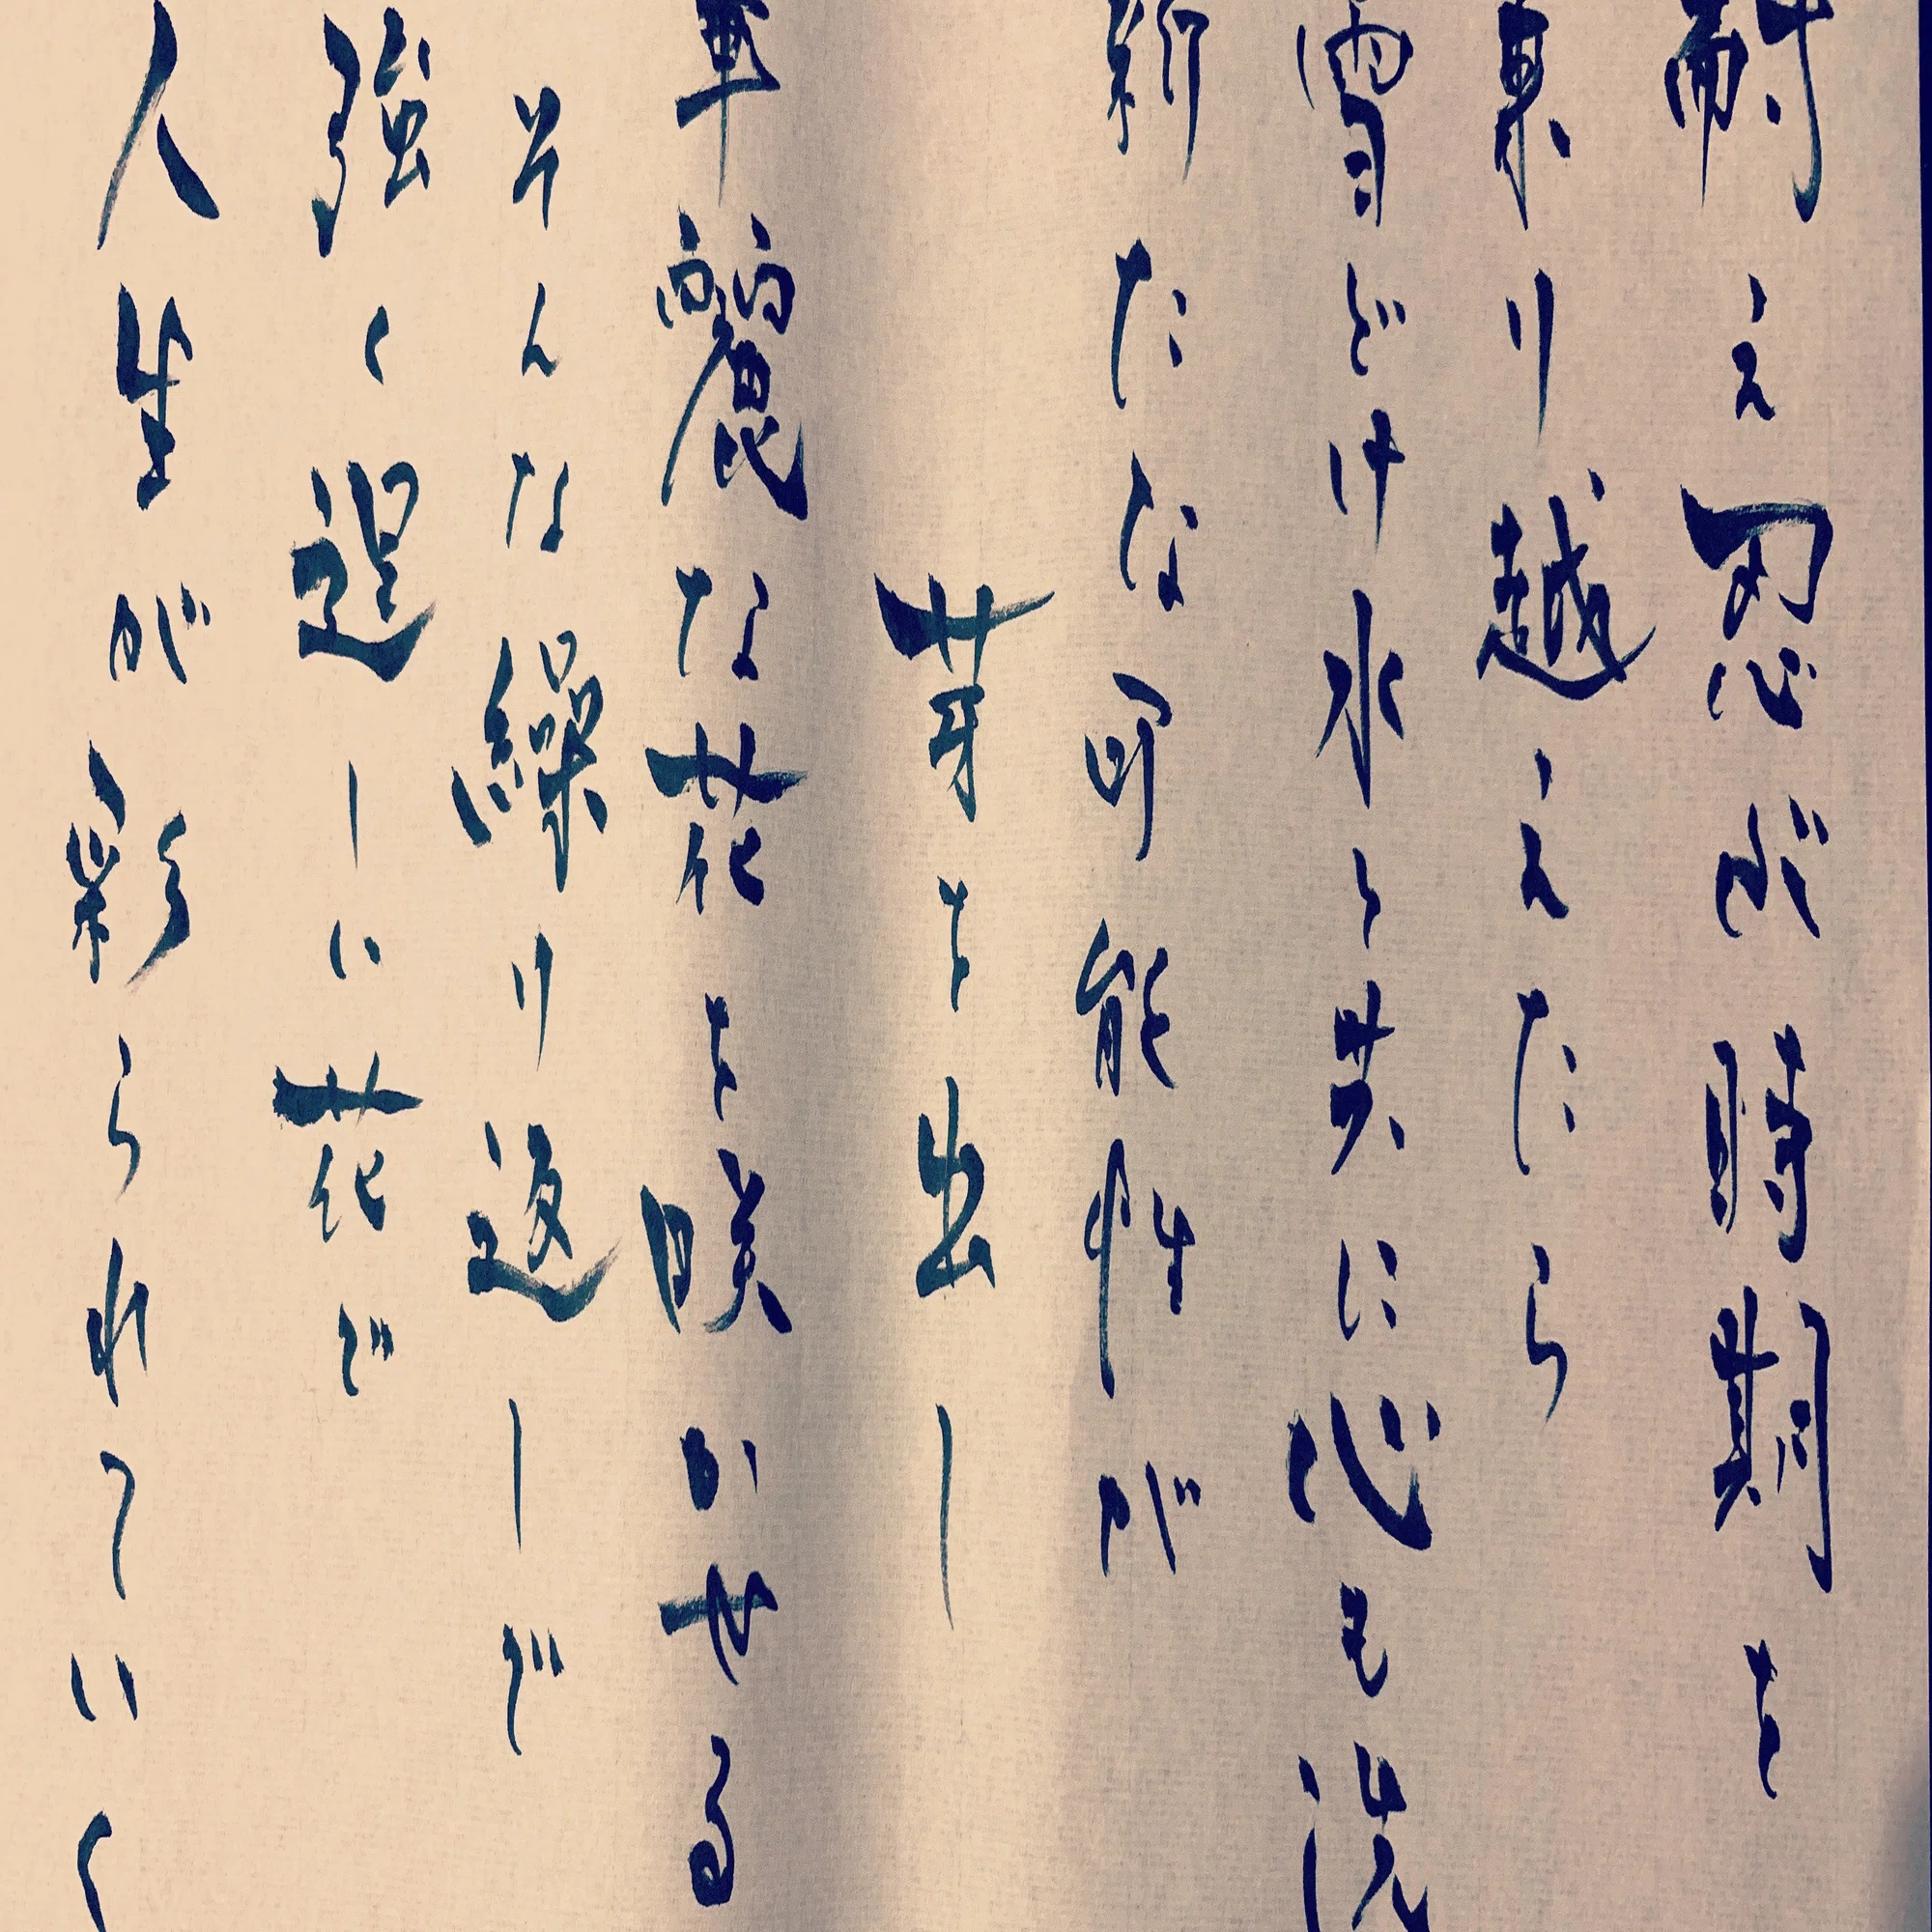 耐え忍ぶ時期を
乗り越えたら
雪どけ水と共に心も洗
新たな可能性が
芽を出し
華麗な花を咲かせる
そんな繰り返しで
強く逞しい花で
人生が彩られていく